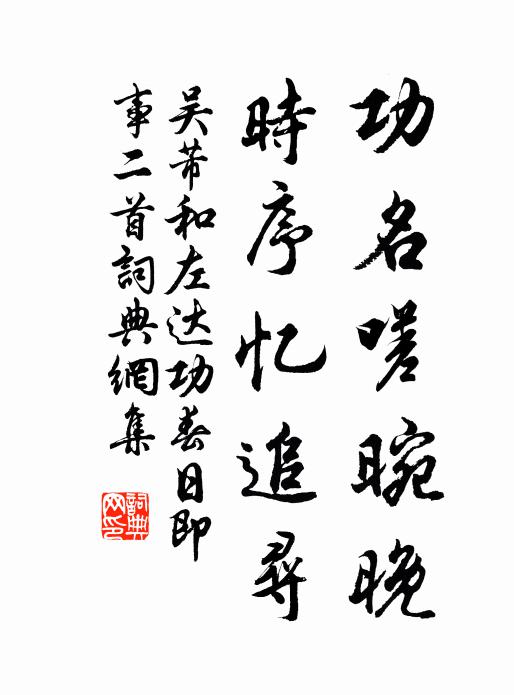 功名嗟晼晚
時序忆追尋
吴芾和左达功春日即
事二首詞典網集
詞典
网印